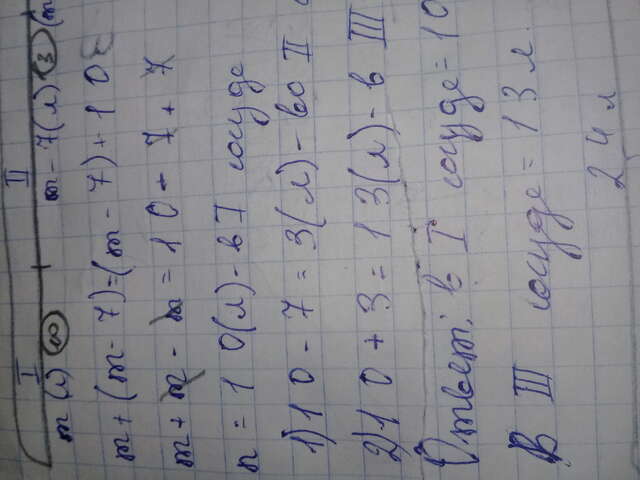 I II
m (л) m - 7(л) 3 (m
m + (m - 7) = (m - 7) + 10
m + m - m = 10 - 7 + 7
n = 10(л) - в I сосуде
1) 10 - 7 = 3(л) - во II
2) 10 + 3 = 13(л) - в III
Ответ: в I сосуде = 10
В III сосуде = 13 л.
24 л